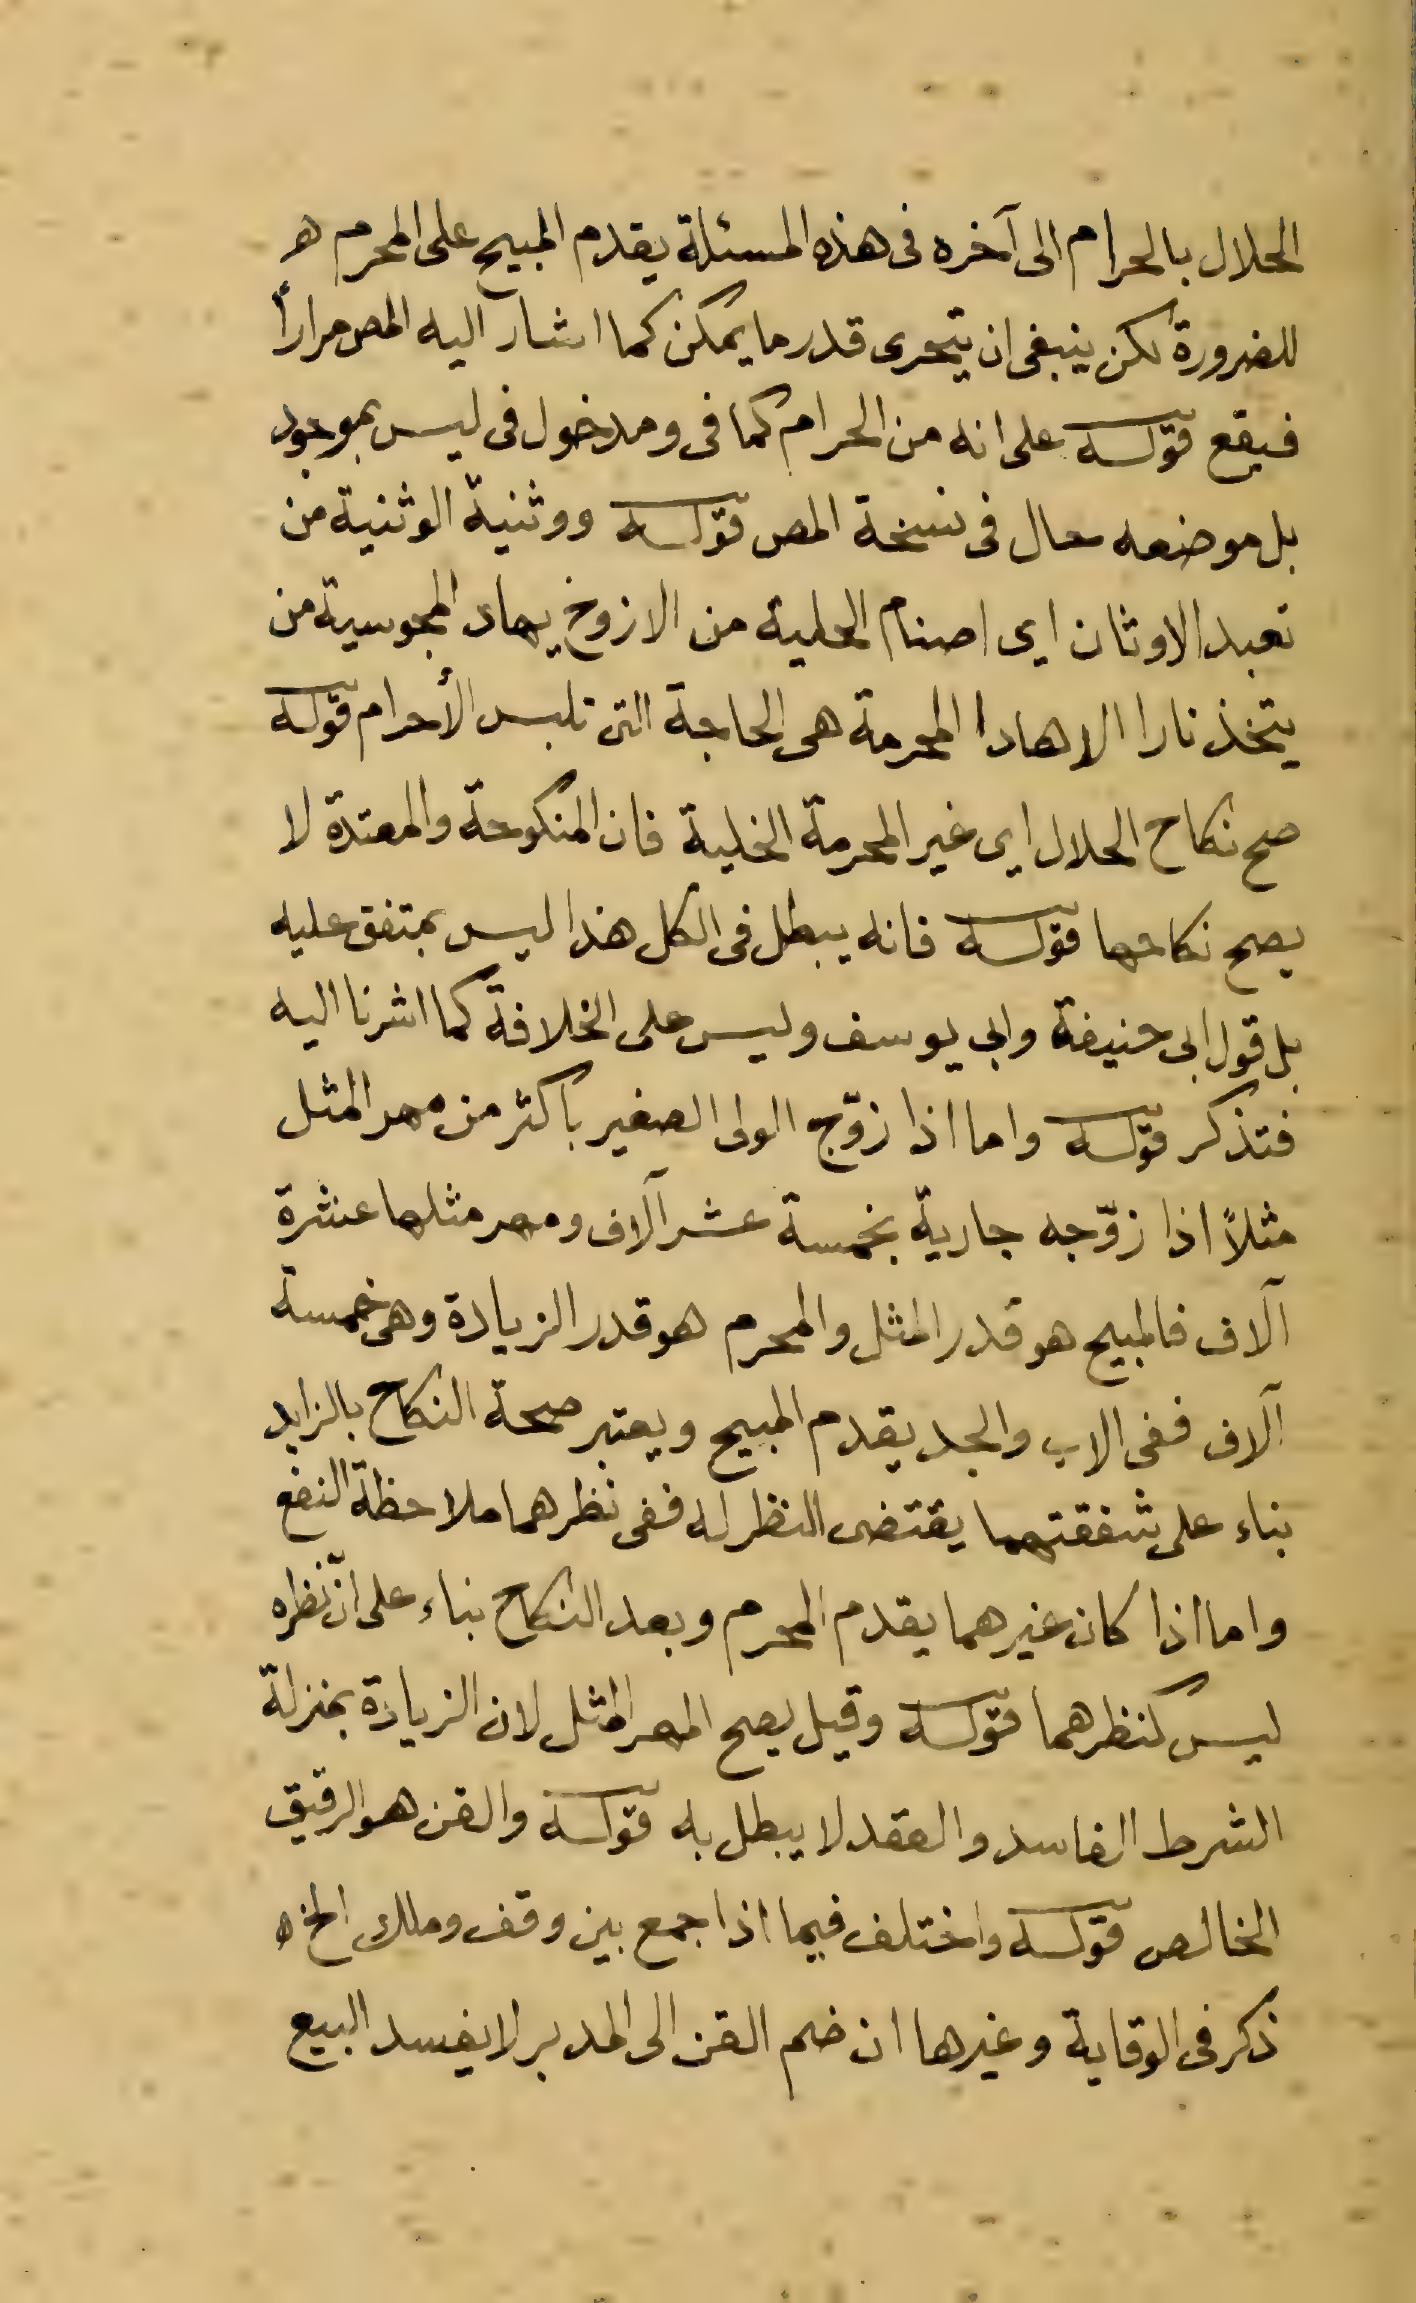 الحلال بالحرام الى آخره فى هذه المسئلة يقدم المبيح على المحرم هو
للضرورة لكن ينبغى ان يتحرى قدر ما يمكن كما اشار اليه المص مراراً
فيقع قوله على انه من الحرام كما فى ومدخول فى ليس بموجود
بل موضعه حال فى نسخة المص قوله ووثنية الوثنية من
تعبد الاوثان اى اصنام الحلية من المجوسية من
يتخذ نارا المحرمة هى الحاجة التى تلبس الأحرام قوله
صح نكاح الحلال اى غير المحرمة الخلية فان المنكوحة والمعتدة لا
يصح نكاحها قوله فانه يبطل فى الكل هذا ليس بمتفق عليه
بل قول ابى حنيفة وابى يوسف وليس على الخلافة كما اشرنا اليه
فتذكر قوله واما اذا زوّج الولى الصغير بأكثر من مهر المثل
مثلاً اذا زوّجه جارية بخمسة عشر آلاف ومهر مثلها عشرة
آلاف فالمبيح هو قدر المثل والمحرم هو قدر الزيادة وهى خمسة
آلاف ففى الاب والجد يقدم المبيح ويعتبر صحة النكاح بالزايد
بناء على شفقتهما يقتضى النظر له ففى نظرهما ملاحظة النفع
واما اذا كان غيرهما يقدم المحرم وبعد النكاح بناء على انّ نظره
ليس كنظرهما قوله وقيل يصح المهر المثل لان الزيادة بمنزلة
الشرط الفاسد والعقد لا يبطل به قوله والقن هو الرقيق
الخالص قوله واختلف فيما اذا جمع بين وقف وملك الخ ه
ذكر فى الوقاية وغيرها ان ضم القن الى المدبر لا يفسد البيع